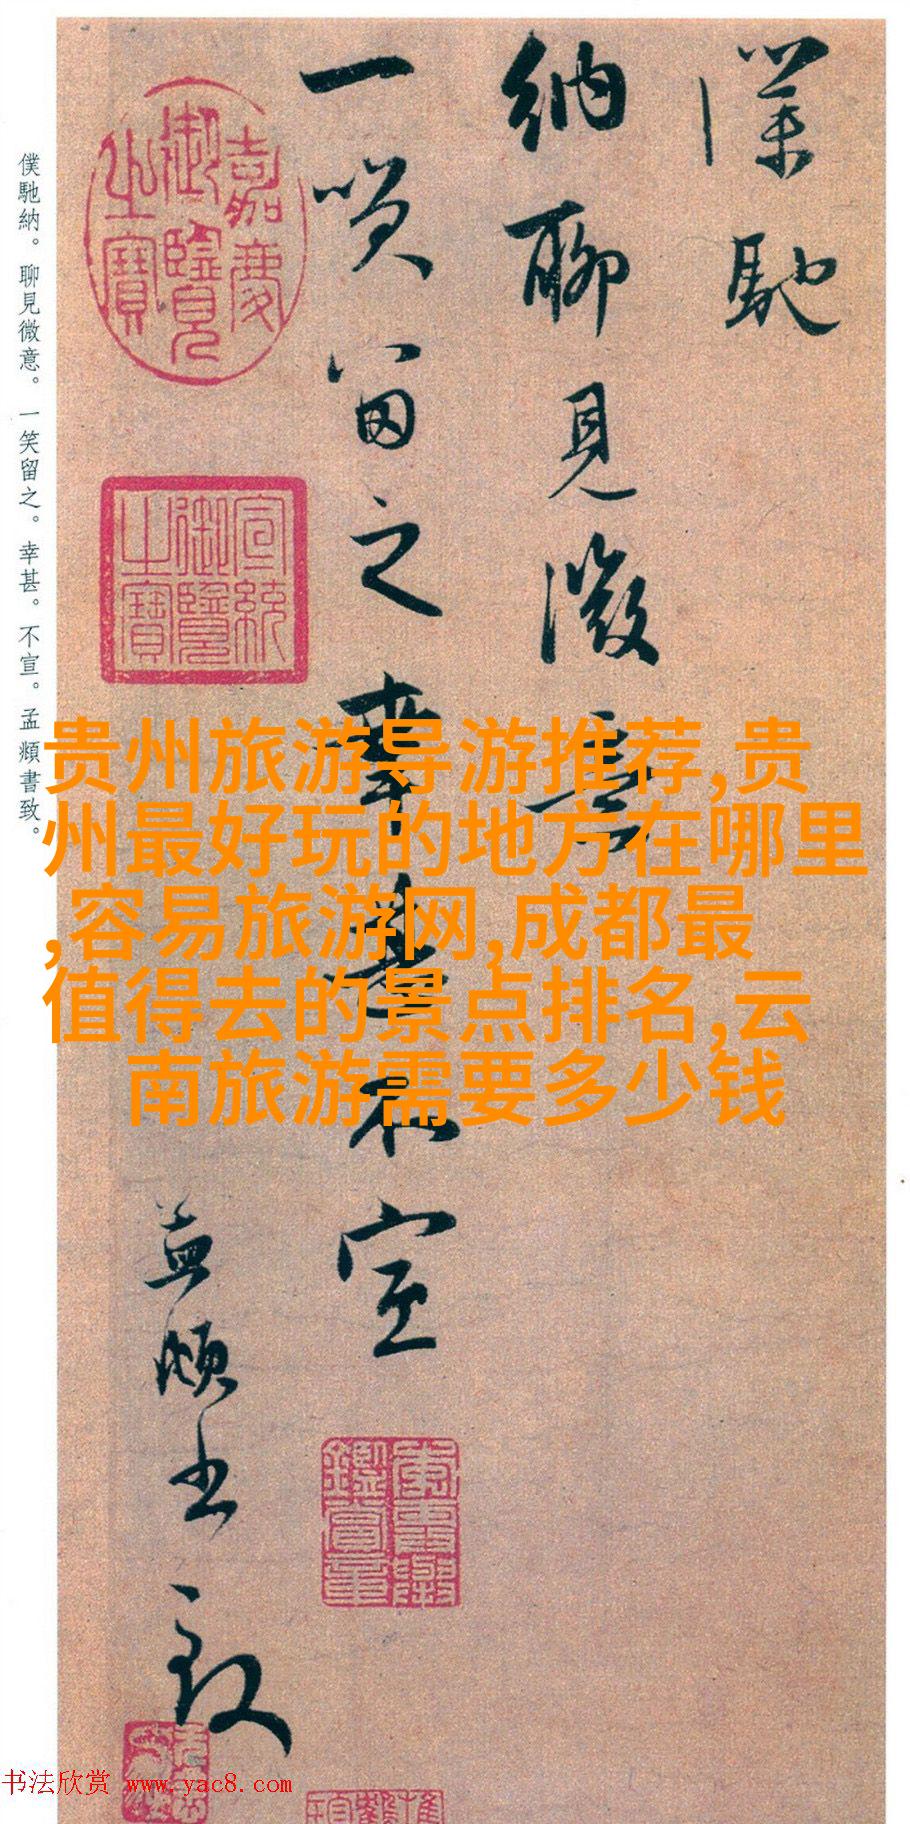 僕馳
納聊見微意
一笑留之幸甚不宣
孟頫書致
嘉慶
御覽
之寶
宣統
御覽
之寶
僕馳納。聊見微意。一笑留之。幸甚。不宣。孟頫書致。
贵州旅游导游推荐,贵
州最好玩的地方在哪里
,容易旅游网,成都最
值得去的景点排名,云
南旅游需要多少钱
书法欣赏 www.yac8.com